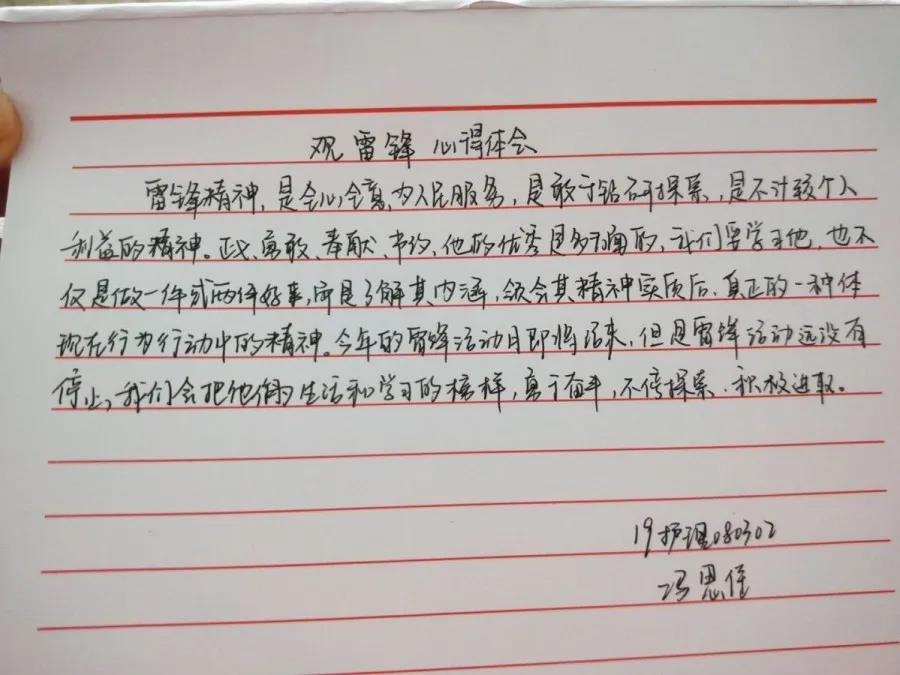 观雷锋心得体会
雷锋精神,是全心全意,为人民服务,是敢于钻研探索,是不计较个人
利益的精神。正义、勇敢、奉献、节约,他的优秀是多方面的,我们要学习他,也不
仅是做一件或两件好事,而是了解其内涵,领会其精神实质后,真正的一种体
现在行为行动中的精神。今年的雷锋活动月即将结束,但是雷锋活动远没有
停止,我们会把他做为生活和学习的榜样,勇于奋斗,不停探索、积极进取。
19护理080302
冯思佳